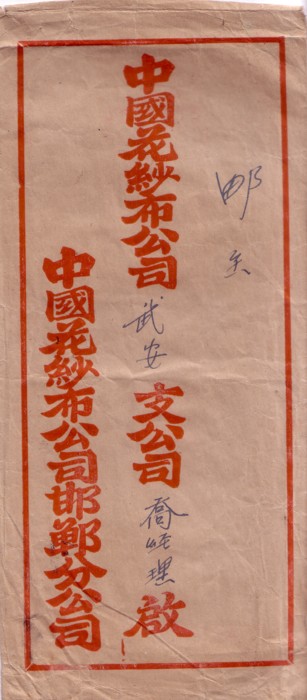 邮至
中國花紗布公司武安支公司喬經理啟
中國花紗布公司邯鄲分公司